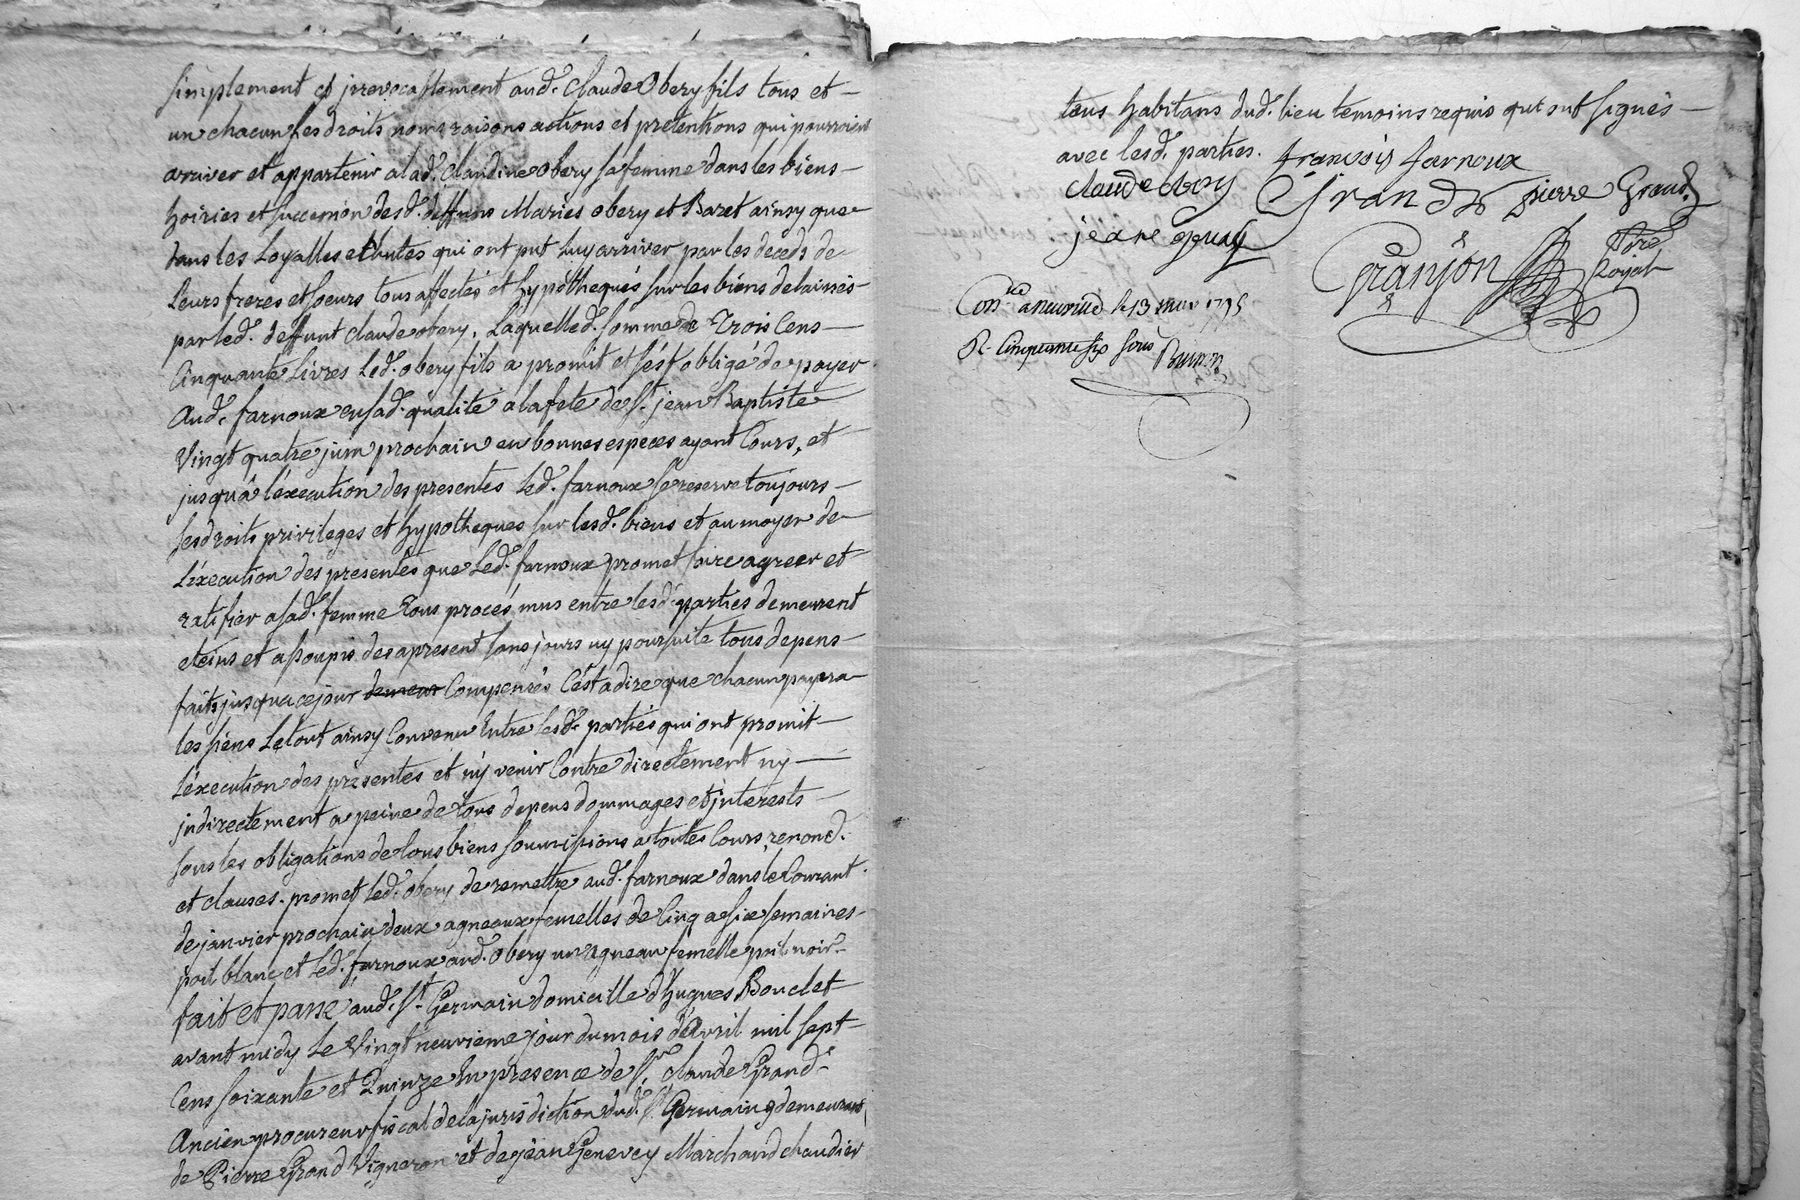 simplement et jrrevocablement aud. Claude Obery fils tous et
un chacun les droits noms raisons actions et pretentions qui pourroient
arriver et appartenir a lad. Claudine obery sa femme dans les biens
hoiries et succession desd. deffuns Maries obery et Bazet ainsy que
dans les Loyalles echutes qui ont put luy arriver par les deceds de
Leurs freres et soeurs tous affectés et hypotheques sur les biens delaissés
par led. deffunt claude obery, Laquelle d. somme de Trois Cens
Cinquante Livres Led. obery fils a promit et s'est obligé de payer
Aud. farnoux en sad. qualité a la fete de St. jean Baptiste
Vingt quatre juin prochain en bonnes especes ayant Cours, et
jusqu'a l'éxecution des presentes Led. farnoux se reserve toujours
ses droits privileges et hypotheques sur lesd. biens et au moyen de
L'éxecution des presentes que Led. farnoux promet faire agreer et
ratifier a sad. femme tous procés mus entre lesd. parties demeurent
eteins et assoupis des apresent sans jours ny poursuite tous depens
faits jusqua ce jour demeur Compensés C'est a dire que chacun payera
les siens Le tout ainsy Convenu Entre lesd. parties qui ont promit
L'éxecution des presentes et n'y venir Contre directement ny
jndirectement a peine de tous depens dommages et jnterests
sous les obligations de tous biens soumissions a toutes Cours, renond.
et clauses. promet led. obery de remettre aud. farnoux dans le Courant
de janvier prochain deux agneaux femelles de Cinq a Six semaines
poil blanc et Led. farnoux aud. obery un agneau femelle poil noir
fait et passe aud. St. Germain domicille d'hugues Bouclet
avant midy Le Vingt neuvieme jour du mois d'Avril mil sept
Cens soixante et Quinze En presence de Sr. claude Grand
Ancien procureur fiscal de la jurisdiction dud. St. Germain y demeurant,
de Pierre Grand Vigneron et de jean Genevey Marchand chaudier
tous habitans dud. lieu temoins requis qui ont signés
avec lesd. parties. francois farnoux
claude obery Grand pierre Grand
jean genevey
Granjon Nre Royal
Con.lé a le 13 mai 1775
R. Cinquante six sous